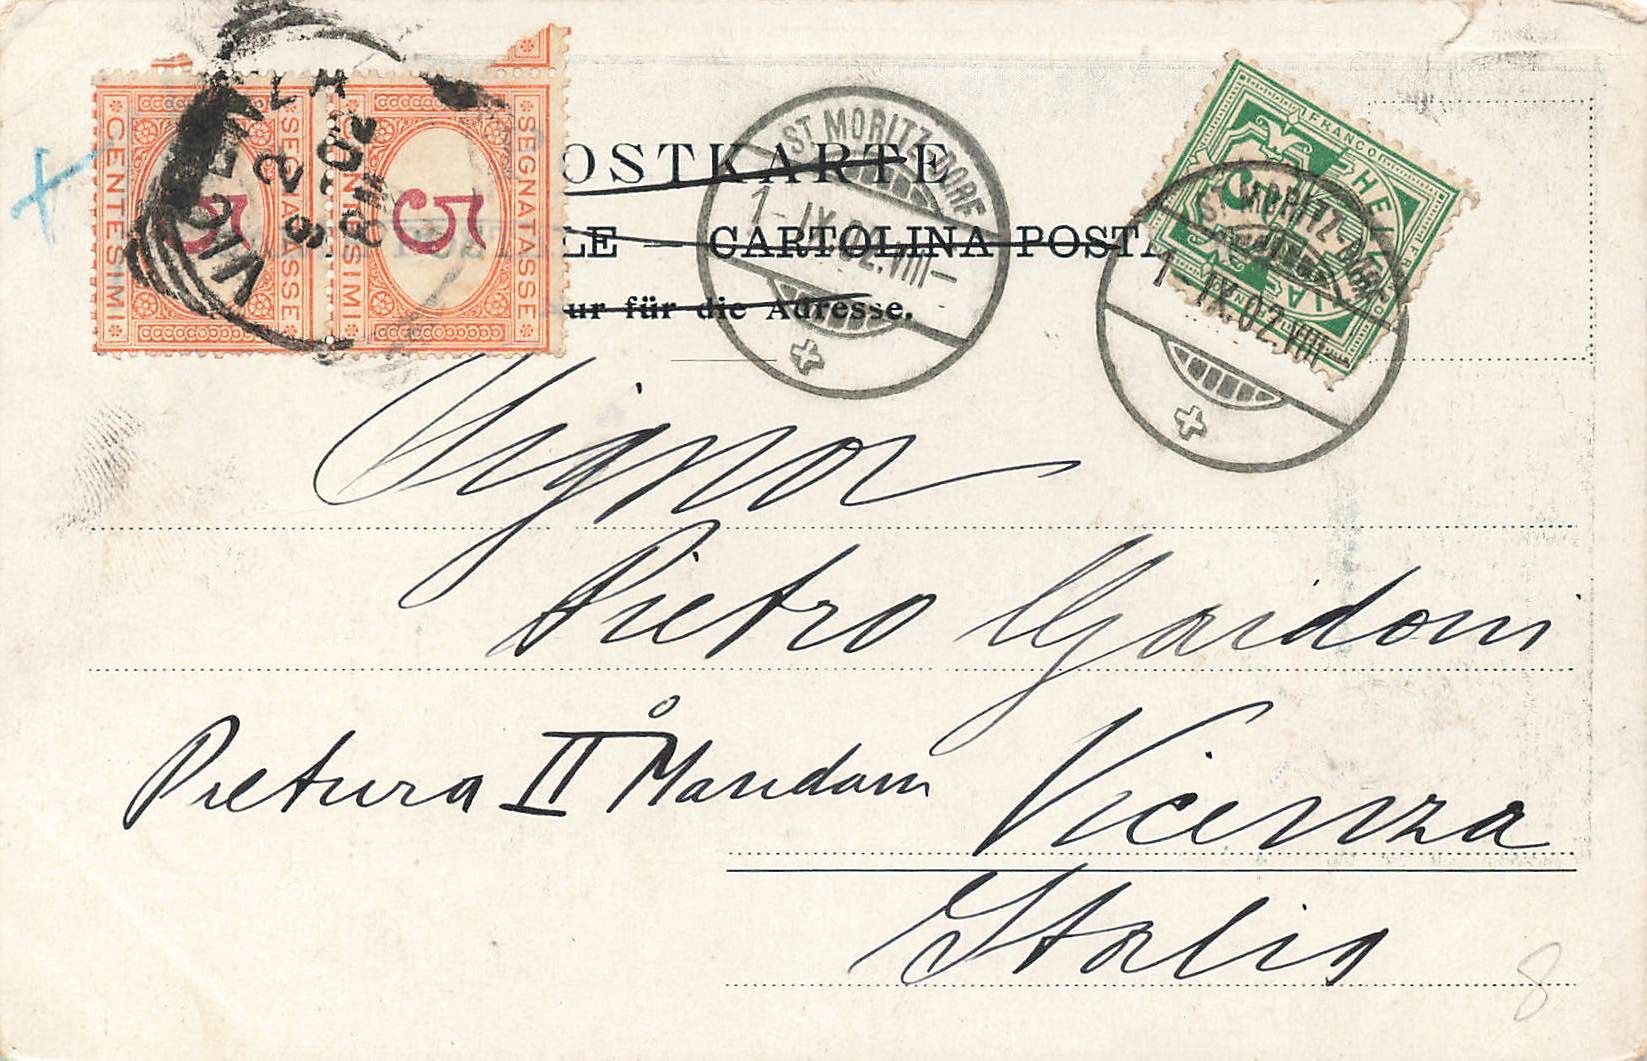 CENTESIMI 5 SEGNATASSE
CENTESIMI 5 SEGNATASSE
VICENZA
2
9 02
ST. MORITZ-DORF
1-IX.02.VIII-
FRANCO
HELVETIA
5
ST. MORITZ-DORF
1-IX.02.VIII-
OSTKARTE
LE — CARTOLINA POSTA
ur für die Adresse.
Signor
Pietro
Pretura II Mandam Vicenza
Italia
8